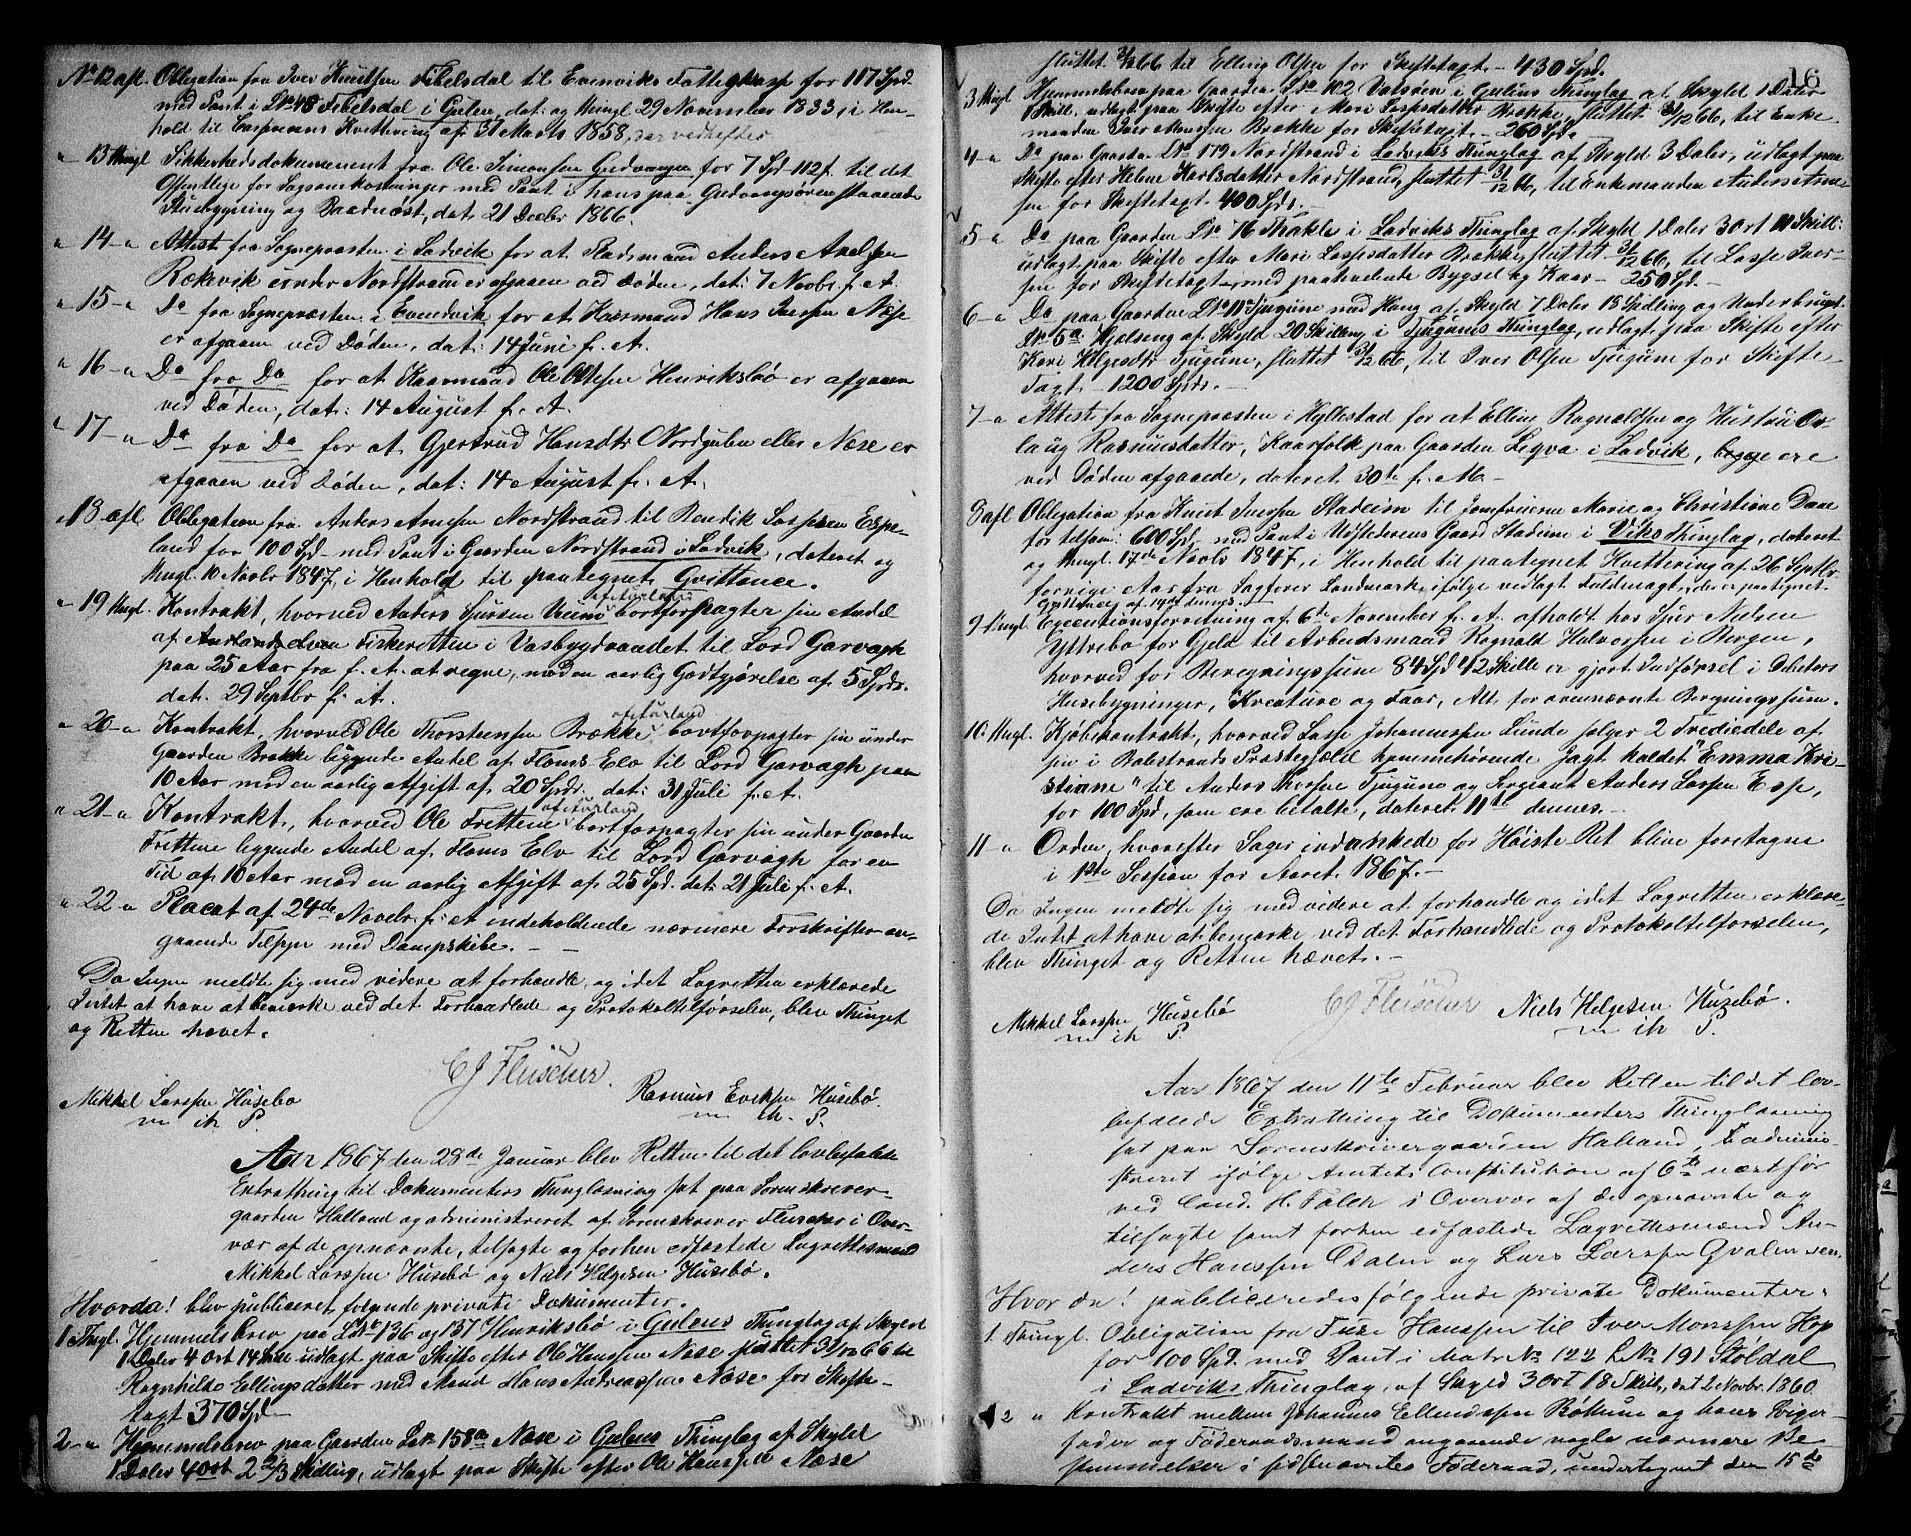 No 12 afl. Obligation fra Iver Knutsen Tibelsdal til Evenviks Fattigkasse for 117 Spd.
med Pant i Lno 48 Tibelsdal i Gulen, dat. og thingl. 29 November 1833, i Hen-
hold til Cessionens Kvittering af 31 Marts 1858, var vedheftet
" 13 thingl Sikkerhedsdokument fra Ole Simonsen Gudvangen for 7 Spd 112 f. til det
Offentlige for Sagsomkostninger med Pant i hans paa Gudvangsøren staaende
Stuebygning og Baadnøst, dat. 21 Decbr 1866.
" 14 - " Attest fra Sognepræsten i Ladvik for at Pladsmand Anders Axelsen
Rækvik under Nordstrand er afgaaen ved Døden, dat: 7 Novbr. f. A.
" 15 - " Do fra Sognepræsten i Evendvik for at Kaarmand Hans Jensen Næse
er afgaaen ved Døden, dat: 14 Juni f. A.
" 16 - " Do fra Do for at Kaarmand Ole Olsen Henriksbø er afgaaen
ved Døden, dat: 14 August f. A.
" 17 - " Do fra Do for at Gjertrud Hansdtr Nordgulen eller Næse er
afgaaen ved Døden, dat: 14 August f. A.
" 18 afl Obligation fra Anders Arnesen Nordstrand til Bendik Lassesen Espe-
land for 100 Spd. med Pant i Gaarden Nordstrand i Ladvik, dateret og
thingl. 10 Novbr 1847, i Henhold til paategnet Qvittance.
" 19 thingl. Kontrakt, hvorved Anders Sjursen Vinne af Aurland bortforpagter sin Andel
af Aurlands elven Fiskeretten i Vasbygdvandet til Lord Garvagh
paa 25 Aar fra f. A. at regne, mod en aarlig Godtgjørelse af 5 Spdr.
dat. 29 Septbr f. A.
" 20 - " Kontrakt, hvorved Ole Thorsteensen Brække af Aurland bortforpagter sin under
Gaarden Brække liggende Andel af Floms Elv til Lord Garvagh paa
10 Aar mod en aarlig Afgift af 20 Spdr. dat: 31 Juli f. A.
" 21 - " Kontrakt, hvorved Ole Frettene af Aurland bortforpagter sin under Gaarden
Frettene liggende Andel af Floms Elv til Lord Garvagh for en
Tid af 10 Aar mod en aarlig Afgift af 25 Spd. dat: 21 Juli f. A.
" 22 - " Placat af 24de Novbr. f. A. indeholdende nærmere Forskrifter an-
gaaende Tilsyn med Dampskibe. -
Da Ingen meldte sig med videre at forhandle, og idet Lagretten erklærede
Intet at have at bemærke ved det Forhandlede og Protokoltilførselen, blev Thinget
og Retten hævet.
CJ Fleischer
Mikkel Larssen Husebø Rasmus Ericksen Husebø.
m ih P. m ih. P.
Aar 1867 den 28de Januar blev Retten til det lovbefalede
Extrathing til Dokumenters Thinglæsning sat paa Sorenskriver-
gaarden Halland og administreret af Sorenskriver Fleischer i Over-
vær af de opnævnte, tilsagte og forhen edfæstede Lagrettesmænd
Mikkel Larssen Husebø og Niels Helgesen Husebø.
Hvorda! blev publiceret følgende private Dokumenter.
1 Thgl. Hjemmelsbrev paa Lno 136 og 137 Henriksbø i Gulens Thinglag af Skyld
1 Daler 4 Ort 14 Skill udlagt paa Skifte efter Ole Hanssen Næse sluttet 3/12 66 til
Ragnhilde Ellingsdatter med Mand Hans Andreassen Næse for Skifte-
tagt 370 Spd -
2 - " Hjemmelsbrev paa Gaarden Lno 158a Næse i Gulens Thinglag af Skyld
1 Daler 4 ort 2 2/3 Skilling, udlagt paa Skifte efter Ole Hanssen Næse
16
sluttet 3/12 66 til Elling Olsen for Skiftetagt - 430 Spd.
3 thingl Hjemmelsbrev paa Gaarden Lno 102 Vatsøen i Gulens Thinglag af Skyld 1 Daler
1 Skill. udlagt paa Skifte efter Mari Lassesdatter Brække, sluttet 3/12 66, til Enke-
manden Iver Monsen Brække for Skiftetagt - 260 Spd.
4 - " Do paa Gaarden Lno 179 Nordstrand i Ladviks Thinglag af Skyld 3 Daler, udlagt paa
Skifte efter Helene Karlsdatter Nordstrand, sluttet 3/12 66, til Enkemanden Anders Arne-
sen for Skiftetagt 400 Spdr. -
5 - " Do paa Gaarden Lno 76 Trakle i Ladviks Thinglag af Skyld 1 Daler 3 ort 11 Skill:
udlagt paa Skifte efter Mari Lassesdatter Brække, sluttet 3/12 66, til Lasse Iver-
sen for Skiftetagt med paahvilende Bygsel og Kaar - 250 Spd. -
6 - " Do paa Gaarden Lno 11a Tjugum med Haug af Skyld 7 Daler 18 Skilling og Underbruget
Lno 5a Hjelseng af Skyld 20 Skilling i Tjugums Thinglag, udlagt paa Skifte efter
Kari Helgesdtr Tjugum, sluttet 3/12 66, til Iver Olsen Tjugum for Skifte-
Tagt - 1200 Spdr. -
7 - " Attest fra Sognepræsten i Hyllestad for at Elling Ragnaldsen og Hustru Or-
laug Rasmusdatter, Kaarfolk paa Gaarden Leqva i Ladvik, begge ere
ved Døden afgaaede, dateret 30te f. M. -
8 afl Obligation fra Knut Iversen Stadeim til Jomfruerne Marie og Christine Daae
for tilsam: 600 Spd. med Pant i Udstederens Gaard Stadeim i Viks Thinglag, dateret
og thingl. 17de Novbr 1847, i Henhold til paategnet Kvittering af 26 Septbr.
forrige Aar fra Sagfører Landmark, ifølge vedlagt Fuldmagt, der er paategnet
Qvittering af 14de dennes.
9 thingl. Executionsforretning af 6te November f. A. afholdt hos Sjur Nielsen
Yttrebø for Gjeld til Arbeidsmand Ragnald Halvorsen i Bergen,
hvorved for Beregningssum 84 Spd 42 Skill er gjort Indførsel i Debitors
Husebygninger, Kreature og Faar, Alt for ovennævnte Beregningssum.
10. thngl. Kjøbekontrakt, hvorved Lasse Johannessen Lunde sælger 2 Trediedele af
sin i Balestrands Præstegjæld hjemmehørende Jagt kaldet "Emma Kri-
stiane" til Anders Thorsen Tjugum og Sergeant Anders Larsen Esse,
for 100 Spd, som ere betalte, dateret 11te dennes. -
11 - " Orden, hvorefter Sager indankede for Høiste Ret blive foretagne
i 1ste Session for Aaret 1867. -
Da Ingen meldte sig med videre at forhandle og idet Lagretten erklære-
de Intet at have at bemærke ved det Forhandlede og Protokoltilførselen,
blev Thinget og Retten hævet. -
CJ Fleischer
Mikkel Larssen Husebø Niels Helgesen Husebø.
m ih P. m ih P.
Aar 1867 den 11te Februar blev Retten til det lov-
befalede Extrathing til Dokumenters Thinglæsning
sat paa Sorenskrivergaarden Halland, admini-
streret ifølge Amtets Constitution af 6te næstfør
ved Cand. H. Falch i Overvær af de opnævnte og
tilsagte samt forhen edfæstede Lagrettesmænd An-
ders Hanssen Dalen og Lars Larssen Qvalen
Hvor da! publiceredes følgende private Dokumenter.
1. Thingl. Obligation fra Tuse Hanssen til Iver Monssen Hop
for 100 Spd. med Pant i Matr No 122 LNo 191 Støldal
i Ladviks Thinglag, af Skyld 3 ort 18 Skill, dat 2 Novbr. 1860.
2 " Kontrakt mellem Johannes Ellendssen Bøtun og hans Sviger-
fader og Føderaadsmand angaaende nogle nærmere Be-
stemmelser i sidstnævntes Føderaad, undertegnet den 15de